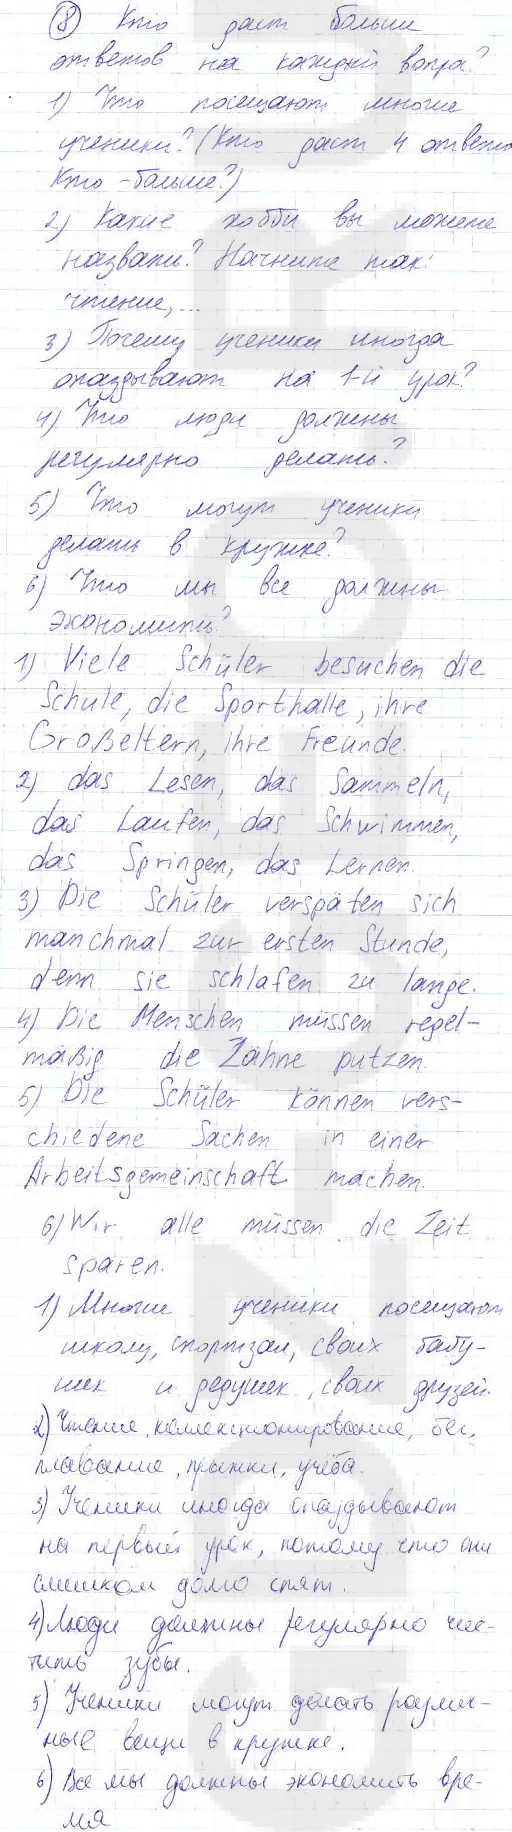 8 Кто даст больше
ответов на каждый вопрос?
1) Что посещают многие
ученики? (Кто даст 4 ответа
Кто - больше?)
2) Какие хобби вы можете
назвать? Начните так:
чтение,...
3) Почему ученики иногда
опаздывают на 1-й урок?
4) Что люди должны
регулярно делать?
5) Что могут ученики
делать в кружке?
6) Что мы все должны
экономить?
1) Viele Schüler besuchen die
Schule, die Sporthalle, ihre
Großeltern, ihre Freunde.
2) das Lesen, das Sammeln,
das Laufen, das Schwimmen,
das Springen, das Lernen.
3) Die Schüler verspäten sich
manchmal zur ersten Stunde,
denn sie schlafen zu lange.
4) Die Menschen müssen regel-
mäßig die Zähne putzen.
5) Die Schüler können vers-
chiedene Sachen in einer
Arbeitsgemeinschaft machen.
6) Wir alle müssen die Zeit
sparen.
1) Многие ученики посещают
школу, спортзал, своих бабу-
шек и дедушек, своих друзей.
2) Чтение, коллекционирование, бег,
плавание, прыжки, учёба.
3) Ученики иногда опаздывают
на первый урок, потому что они
слишком долго спят.
4) Люди должны регулярно чис-
тить зубы.
5) Ученики могут делать различ-
ные вещи в кружке.
6) Все мы должны экономить вре-
мя
GDZ-GEO.RU